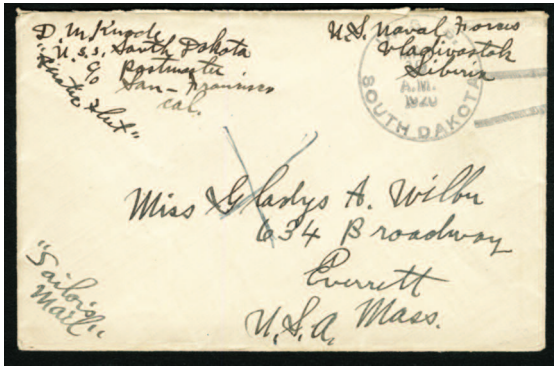 D. M. Knode
U.S.S. South Dakota
c/o Postmaster
San-Francisco
Cal.
"Asiatic Fleet"
U.S. Naval Forces
Vladivostok
Siberia
A.M.
1920
SOUTH DAKOTA
Miss Gladys A. Wilbur
634 Broadway
Everett
Mass.
U.S.A.
"Sailors
Mail"